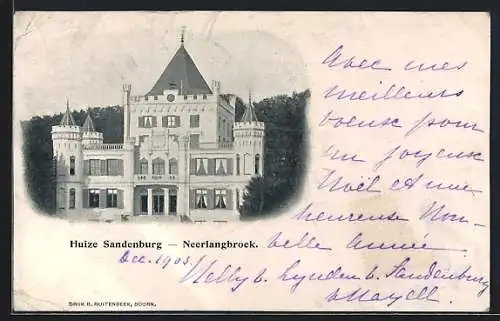 Avec mes
meilleurs
voeux pour
un joyeux
Noël et une
heureuse Nou-
velle Année
Huize Sandenburg — Neerlangbroek.
Dec. 1903. Nelly v. Lynden v. Sandenburg
DRUK G. RUITENBEEK, DOORN.